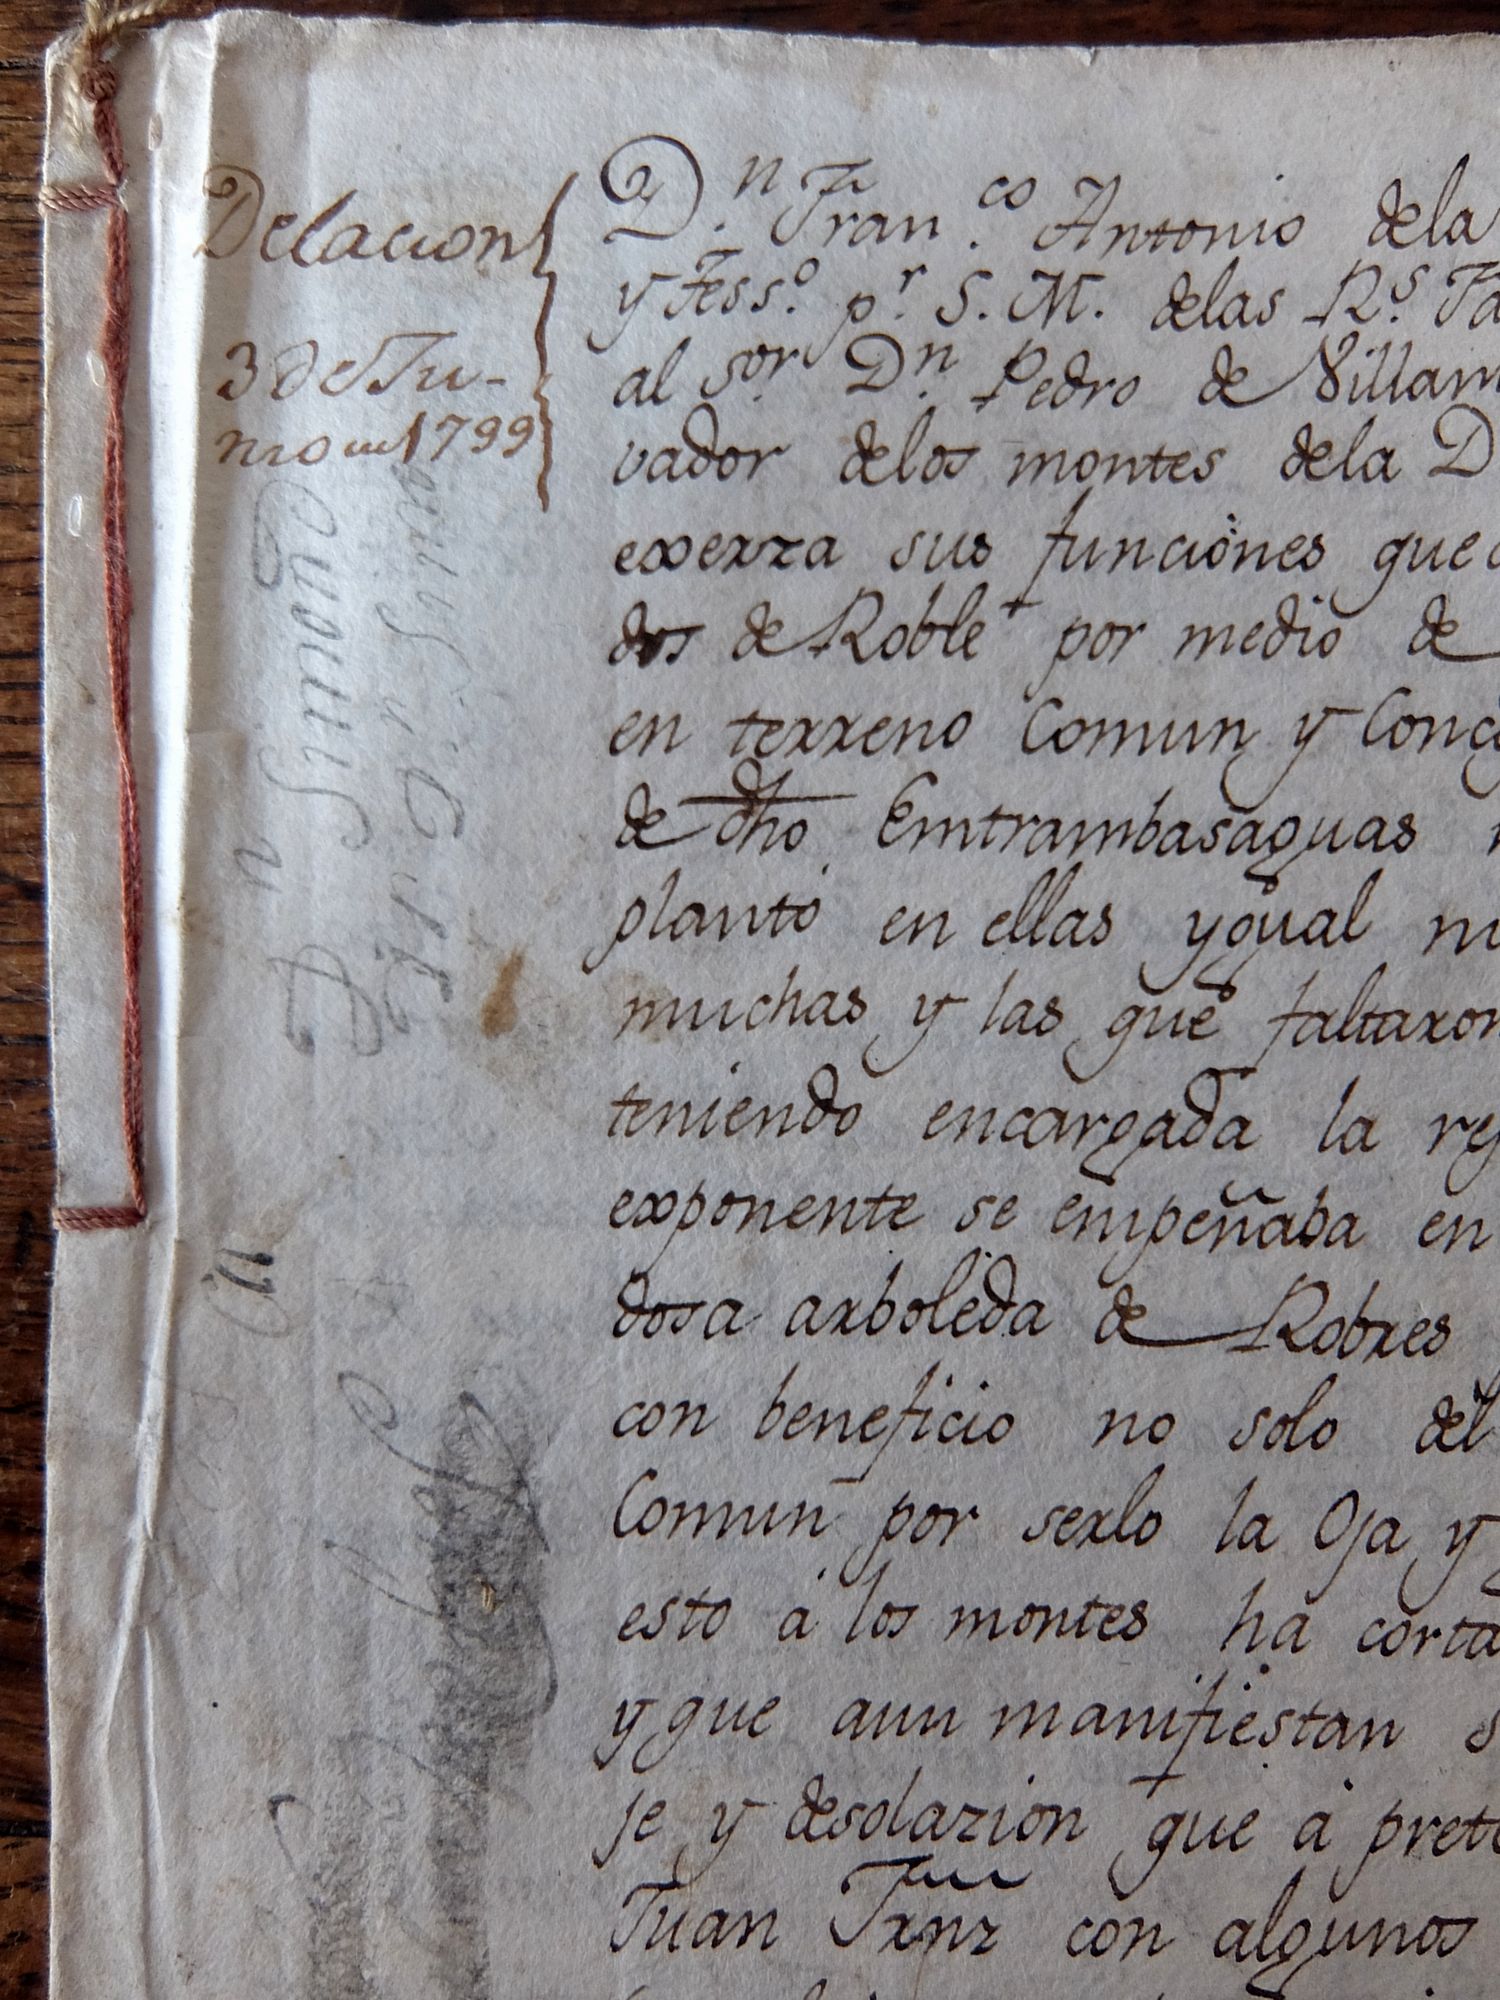 Delacion
3 de Ju-
nio 1799
D.n Fran.co Antonio dela
y Tess.o p.r S. M. delas R.s
al S.or D.n Pedro de Villam
vador delos montes dela D
exerza sus funciones que
dos de Roble por medio de
en terreno Comun y Conce
de dho Emtrambasaguas
planto en ellas ygual nu
muchas y las que faltaron
teniendo encargada la
exponente se empeñaba en
dosa arboleda de Robres
con beneficio no solo del
Comun por serlo la Oja y
esto á los montes ha corta
y que aun manifiestan s
je y desolazion que á prete
Juan con algunos
D.n Simon